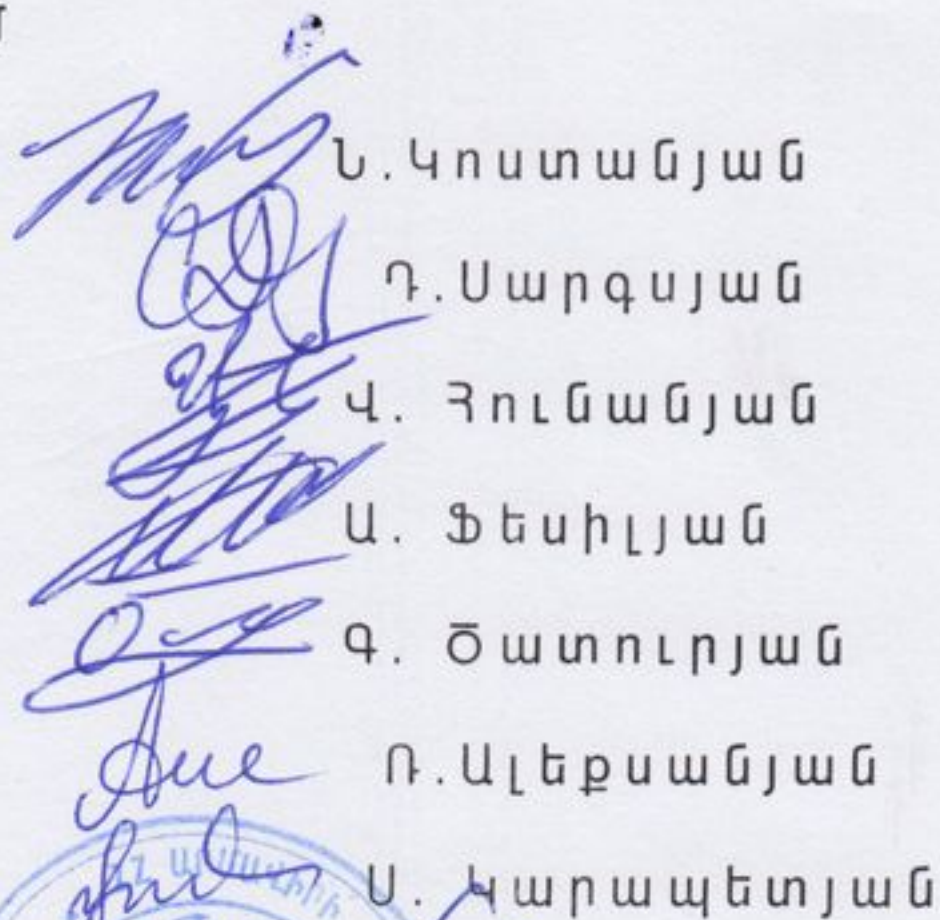 Ն.Կոստանյան
Դ.Սարգսյան
Վ. Հունանյան
Ա. Ֆեսիլյան
Գ. Ծատուրյան
Ռ.Ալեքսանյան
Ս. Կարապետյան